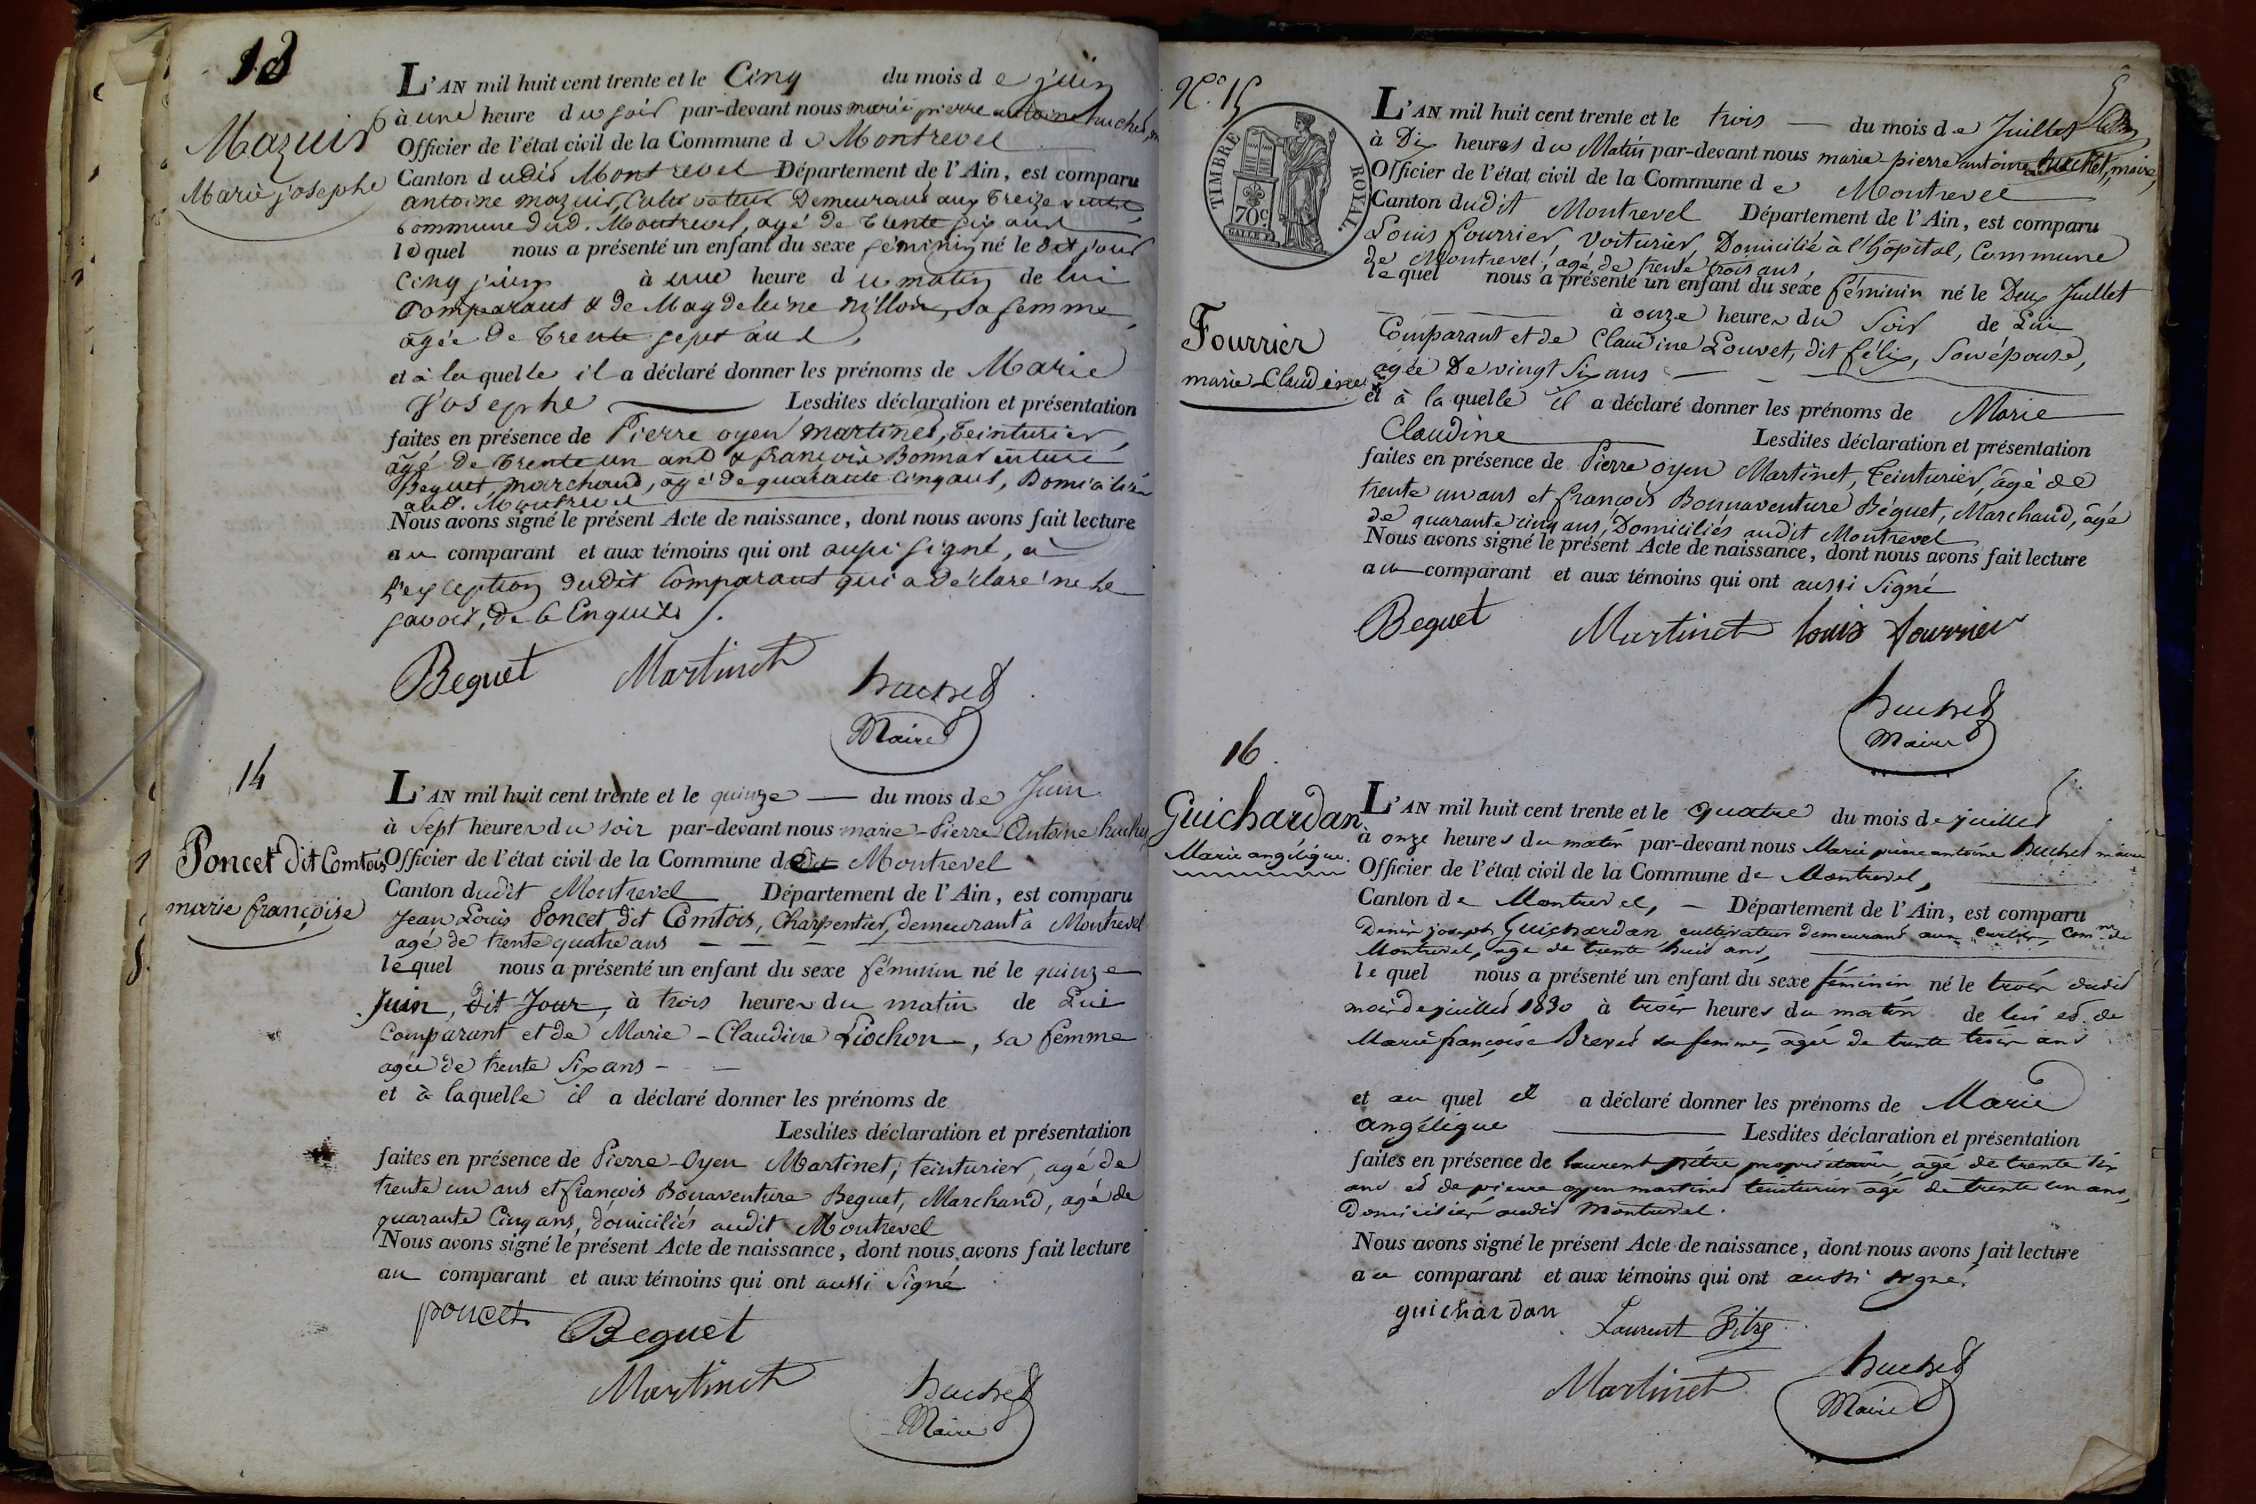 13
Mazuis
Marie josephe
L'AN mil huit cent trente et le Cinq du mois de juin
à une heure du soir par-devant nous marie pierre antoine huchet,
Officier de l'état civil de la Commune de Montrevel
Canton dudit Montrevel Département de l'Ain, est comparu
antoine mazuis, Cultivateur Demeurant aux Treize vents,
Commune dud. Montrevel, agé de trente six ans
lequel nous a présenté un enfant du sexe féminin né le dit jour
Cinq juin à une heure du matin de lui
Comparant & de Magdeleine sa femme,
agée de trente sept ans,
et à laquelle il a déclaré donner les prénoms de Marie
Josephe Lesdites déclaration et présentation
faites en présence de Pierre oyen Martinet, teinturier,
agé de trente un ans & françois Bonnaventure
Beguet, marchand, agé de quarante Cinq ans, Domiciliés
aud. Montrevel
Nous avons signé le présent Acte de naissance, dont nous avons fait lecture
au comparant et aux témoins qui ont aussi signé, à
l'exception dudit Comparant qui a déclaré ne le
savoir, de ce Enquis.
Beguet Martinet huchet
Maire
14
Poncet dit Comtois
marie françoise
L'AN mil huit cent trente et le quinze du mois de Juin
à Sept heures du soir par-devant nous marie-Pierre Antoine huchet,
Officier de l'état civil de la Commune de Montrevel
Canton dudit Montrevel Département de l'Ain, est comparu
Jean Louis Poncet dit Comtois, Charpentier, demeurant à Montrevel
agé de trente quatre ans
lequel nous a présenté un enfant du sexe féminin né le quinze
Juin, dit Jour, à trois heures du matin de Lui
Comparant et de Marie-Claudine Liochon, sa femme
agée de trente Six ans
et à laquelle il a déclaré donner les prénoms de
Lesdites déclaration et présentation
faites en présence de Pierre-Oyen Martinet, teinturier, agé de
trente un ans et françois Bonaventure Beguet, Marchand, agé de
quarante Cinq ans, domiciliés audit Montrevel
Nous avons signé le présent Acte de naissance, dont nous avons fait lecture
au comparant et aux témoins qui ont aussi Signé
poncet Beguet
Martinet huchet
Maire
5
N.º 15
TIMBRE ROYAL.
70c
Fourrier
marie-Claudine
L'AN mil huit cent trente et le trois du mois de Juillet
à Dix heures du Matin par-devant nous marie-pierre antoine huchet, maire,
Officier de l'état civil de la Commune de Montrevel
Canton dudit Montrevel Département de l'Ain, est comparu
Louis fourrier, Voiturier, Domicilié à l'hôpital, Commune
de Montrevel, agé de trente trois ans,
lequel nous a présenté un enfant du sexe féminin né le Deux Juillet
à onze heures du Soir de Lui
Comparant et de Claudine Louvet, dit félix, Son épouse,
agée De vingt Six ans
et à laquelle il a déclaré donner les prénoms de Marie
Claudine Lesdites déclaration et présentation
faites en présence de Pierre oyen Martinet, teinturier, agé de
trente un ans et françois Bonnaventure Béguet, Marchand, agé
de quarante cinq ans, Domiciliés audit Montrevel
Nous avons signé le présent Acte de naissance, dont nous avons fait lecture
au comparant et aux témoins qui ont aussi Signé
Beguet Martinet louis fourrier
huchet
Maire
16
Guichardan
Marie angélique.
L'AN mil huit cent trente et le quatre du mois de juillet
à onze heures du matin par-devant nous Marie pierre antoine huchet maire
Officier de l'état civil de la Commune de Montrevel,
Canton de Montrevel, Département de l'Ain, est comparu
Denis joseph Guichardan cultivateur demeurant aux Comne de
Montrevel, agé de trente huit ans,
lequel nous a présenté un enfant du sexe féminin né le trois dudit
mois de juillet 1830 à trois heures du matin de lui et de
Marie françoise Brevet sa femme, agée de trente trois ans
et au quel il a déclaré donner les prénoms de Marie
angélique Lesdites déclaration et présentation
faites en présence de laurent pitre propriétaire, agé de trente six
ans et de pierre oyen martinet teinturier agé de trente un ans,
Domiciliés audit Montrevel.
Nous avons signé le présent Acte de naissance, dont nous avons fait lecture
au comparant et aux témoins qui ont aussi signé.
guichardan Laurent Pitre
Martinet huchet
Maire